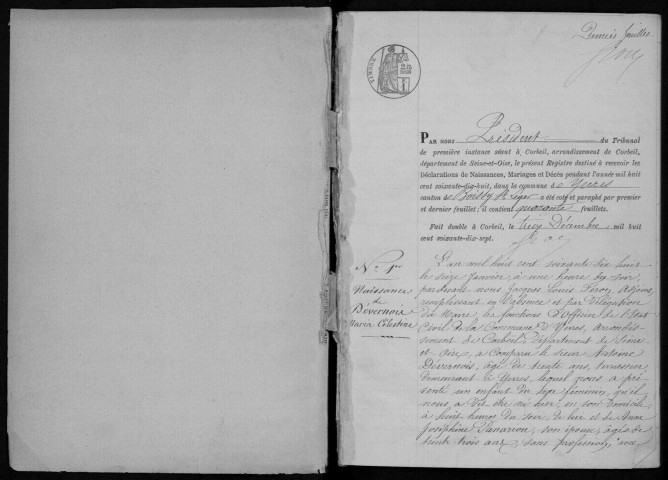 Premier feuillet
TIMBRE
PAR NOUS Président du Tribunal
de première instance séant à Corbeil, arrondissement de Corbeil,
département de Seine-et-Oise, le présent Registre destiné à recevoir les
Déclarations de Naissances, Mariages et Décès pendant l'année mil huit
cent soixante-dix-huit, dans la commune d'Yerres
canton de Boissy St Leger a été coté et paraphé par premier
et dernier feuillet; il contient quarante feuillets.
Fait double à Corbeil, le treize Décembre mil huit
cent soixante-dix-sept.
N° 1er
Naissance
de
Dévernois
Maria Célestine
L'an mil huit cent soixante dix huit
le seize Janvier à une heure du soir,
pardevant nous Jacques Louis Adjoint
remplissant en l'absence et par Délégation
du Maire, les fonctions d'Officier de l'Etat
Civil de la Commune d'Yerres, arrondis-
sement de Corbeil, Département de Seine
et Oise, a Comparu le sieur Antoine
Dévernois, âgé de trente ans, terrassier,
demeurant à Yerres, lequel nous a pré-
senté un enfant du sexe féminin, qu'il
nous a dit être né hier, en son Domicile
à huit heures du soir, de lui et de Anne
Joséphine son épouse, âgée de
vingt trois ans, sans profession, avec